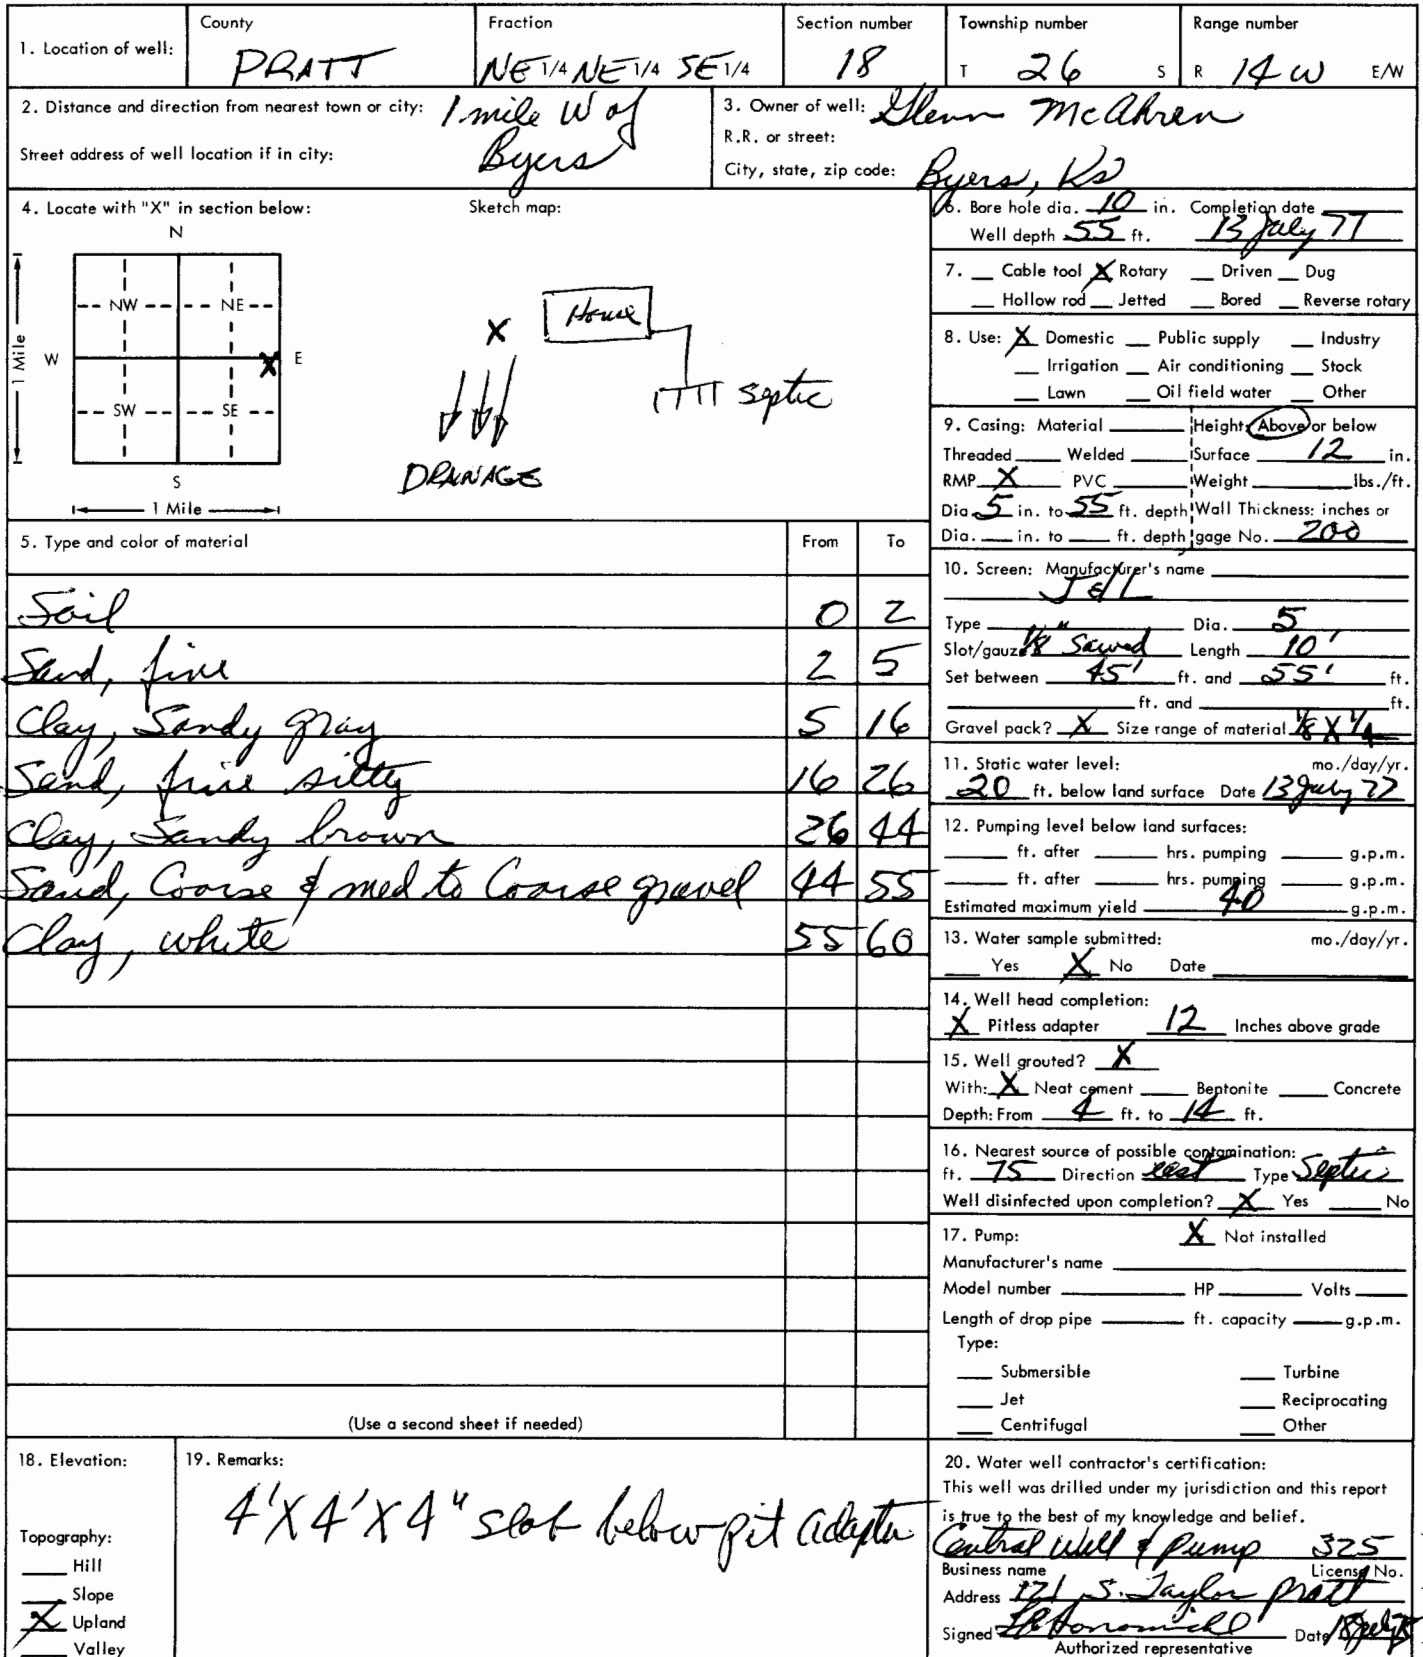 1. Location of well: County PRATT Fraction NE 1/4 NE 1/4 SE 1/4 Section number 18 Township number T 26 S Range number R 14 W E/W
2. Distance and direction from nearest town or city: 1 mile W of Byers
Street address of well location if in city:
3. Owner of well: Glenn McAhren
R.R. or street:
City, state, zip code: Byers, Ks
4. Locate with "X" in section below: Sketch map:
N
NW NE
W X E
SW SE
S
1 Mile
1 Mile
X House
septic
DRAINAGE
5. Type and color of material From To
Soil 0 2
Sand, fine 2 5
Clay, Sandy gray 5 16
Sand, fine silty 16 26
Clay, Sandy brown 26 44
Sand, Coarse & med to Coarse gravel 44 55
Clay, white 55 60
(Use a second sheet if needed)
6. Bore hole dia. 10 in. Completion date
Well depth 55 ft. 13 July 77
7. Cable tool X Rotary Driven Dug
Hollow rod Jetted Bored Reverse rotary
8. Use: X Domestic Public supply Industry
Irrigation Air conditioning Stock
Lawn Oil field water Other
9. Casing: Material Height: Above or below
Threaded Welded Surface 12 in.
RMP X PVC Weight lbs./ft.
Dia. 5 in. to 55 ft. depth Wall Thickness: inches or
Dia. in. to ft. depth gage No. 200
10. Screen: Manufacturer's name
Type Dia. 5
Slot/gauze 1/8" Sawed Length 10'
Set between 45' ft. and 55' ft.
ft. and ft.
Gravel pack? X Size range of material 1/8 X 1/4
11. Static water level: mo./day/yr.
20 ft. below land surface Date 13 July 77
12. Pumping level below land surfaces:
ft. after hrs. pumping g.p.m.
ft. after hrs. pumping g.p.m.
Estimated maximum yield 40 g.p.m.
13. Water sample submitted: mo./day/yr.
Yes X No Date
14. Well head completion:
X Pitless adapter 12 Inches above grade
15. Well grouted? X
With: X Neat cement Bentonite Concrete
Depth: From 4 ft. to 14 ft.
16. Nearest source of possible contamination:
ft. 75 Direction east Type Septic
Well disinfected upon completion? X Yes No
17. Pump: X Not installed
Manufacturer's name
Model number HP Volts
Length of drop pipe ft. capacity g.p.m.
Type:
Submersible Turbine
Jet Reciprocating
Centrifugal Other
18. Elevation:
Topography:
Hill
Slope
X Upland
Valley
19. Remarks:
4'X4'X4" slab below pit adapter
20. Water well contractor's certification:
This well was drilled under my jurisdiction and this report
is true to the best of my knowledge and belief.
Central Well & Pump 325
Business name License No.
Address 121 S. Taylor Pratt
Signed Date
Authorized representative